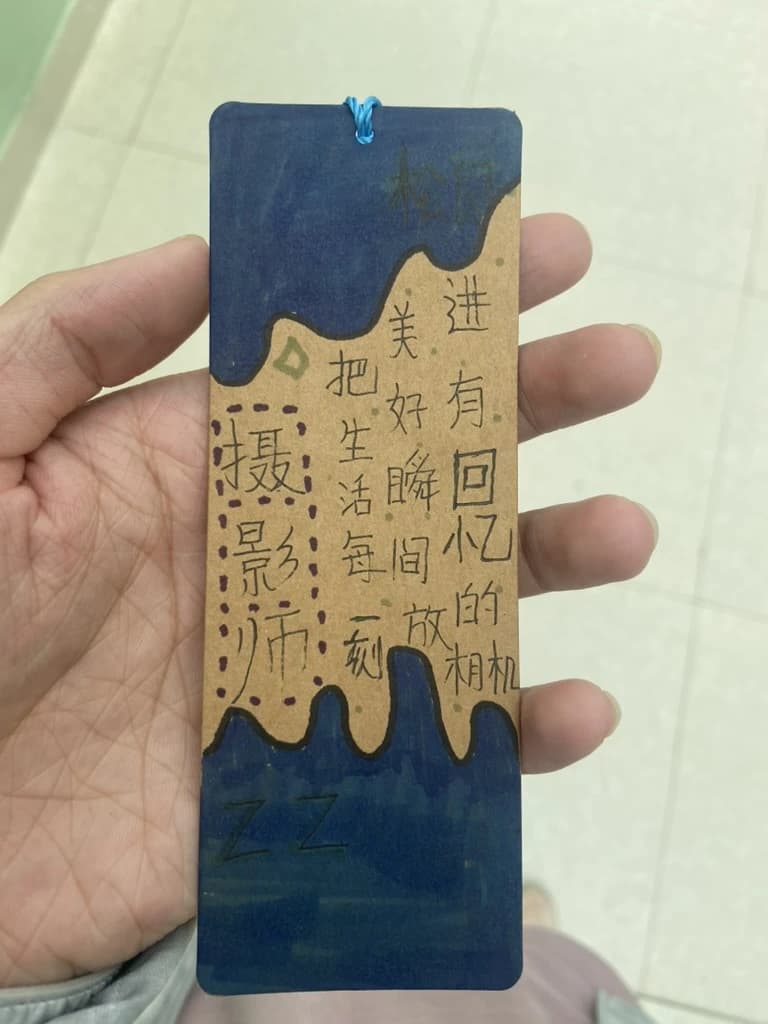 摄影师
把生活每一刻
美好瞬间放
进有回忆的相机
ZZ